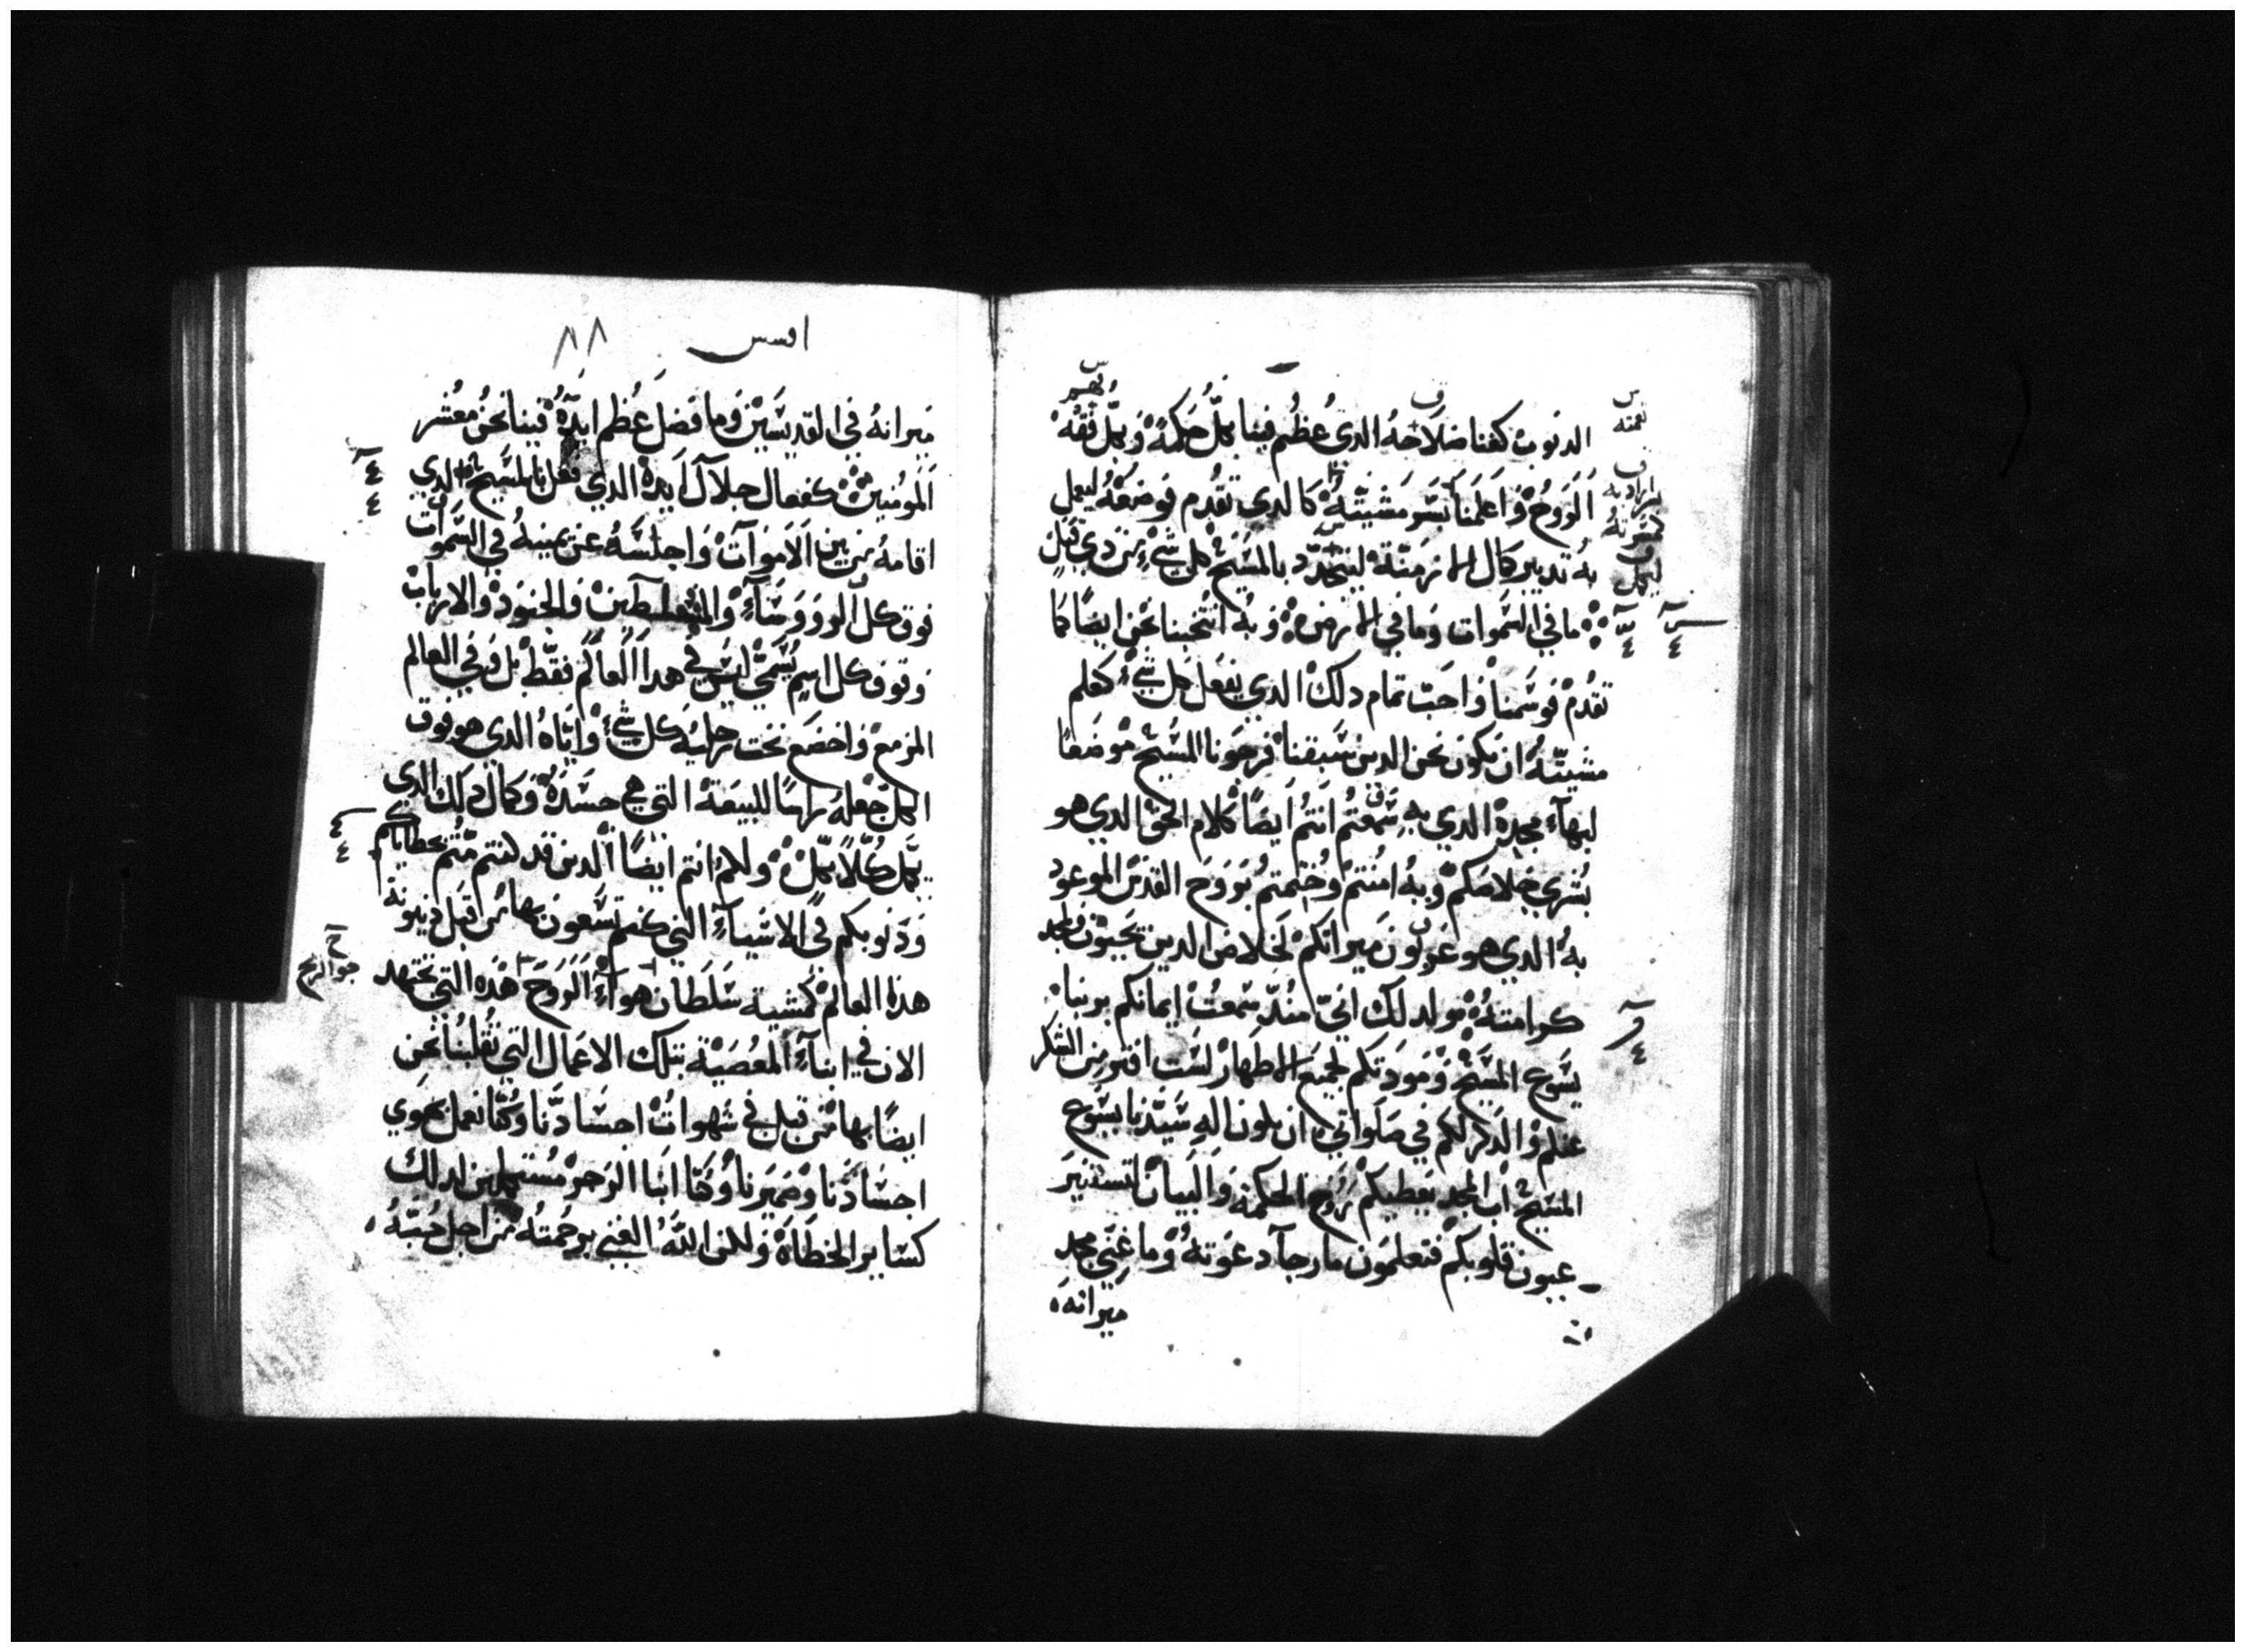 الدنوب كغنا صلاحه الدي عظم فينا بكل حكمة وبكل فقه
الروح واعلمنا بسر مشيته كالدي تقدم فوضعه ليعمل
به تدبير كمال الازمنة ليتجدد بالمسيح كل شي من دي قبل
ما في السموات وما في الارض وبه انتخبنا نحن ايضا كما
تقدم فوسمنا واحب تمام دلك الدي يفعل كل شي كعلم
مشيته ان نكون نحن الدين سبقنا فرجونا المسيح موضعا
لبهاء مجده الدي به سمعتم انتم ايضا كلام الحق الدي هو
بشرى خلاصكم وبه امنتم وختمتم بروح القدس الموعود
به الدي هو عربون ميراثكم لخلاص الدين يحيون ولمجد
كرامته من اجل دلك اني مند سمعت ايمانكم بربنا
يسوع المسيح ومودتكم لجميع الاطهار لست افتر من الشكر
عنكم والدكر لكم في صلواتي ان يكون اله سيدنا يسوع
المسيح اب المجد يعطيكم روح الحكمة والبيان لتستنير
عيون قلوبكم فتعلمون ما رجآ دعوته وما غنى مجد
ميراثه
افسس
٨٨
ميراثه في القديسين وما فضل عظم ايده فينا نحن معشر
المومنين كفعال جلال ايده الدي فعل بالمسيح الدي
اقامه من بين الاموات واجلسه عن يمينه في السموات
فوق كل الرووسآء والمسلطين والجنود والارباب
وفوق كل اسم يسمى ليس في هدا العالم فقط بل وفي العالم
المزمع واخضع تحت رجليه كل شي واياه الدي هو فوق
الكل جعله راسا للبيعة التي هي جسده وكمال دلك الدي
يكمل كلا بكل ولكم انتم ايضا الدين قد كنتم متم بخطاياكم
ودنوبكم في الاشيآء التي كنتم تسعون بها من قبل دنيونة
هدا العالم كمشية سلطان هوآء الروح هده التي تجتهد
الان في ابنآء المعصية بتلك الاعمال التي تقلبنا نحن
ايضا بها من قبل في شهوات اجسادنا وكنا نعمل بهوي
اجسادنا وضميرنا وكنا ابنا الرجز مستكملين لدلك
كساير الخطاه ولكن الله الغني برحمته من اجل حبه